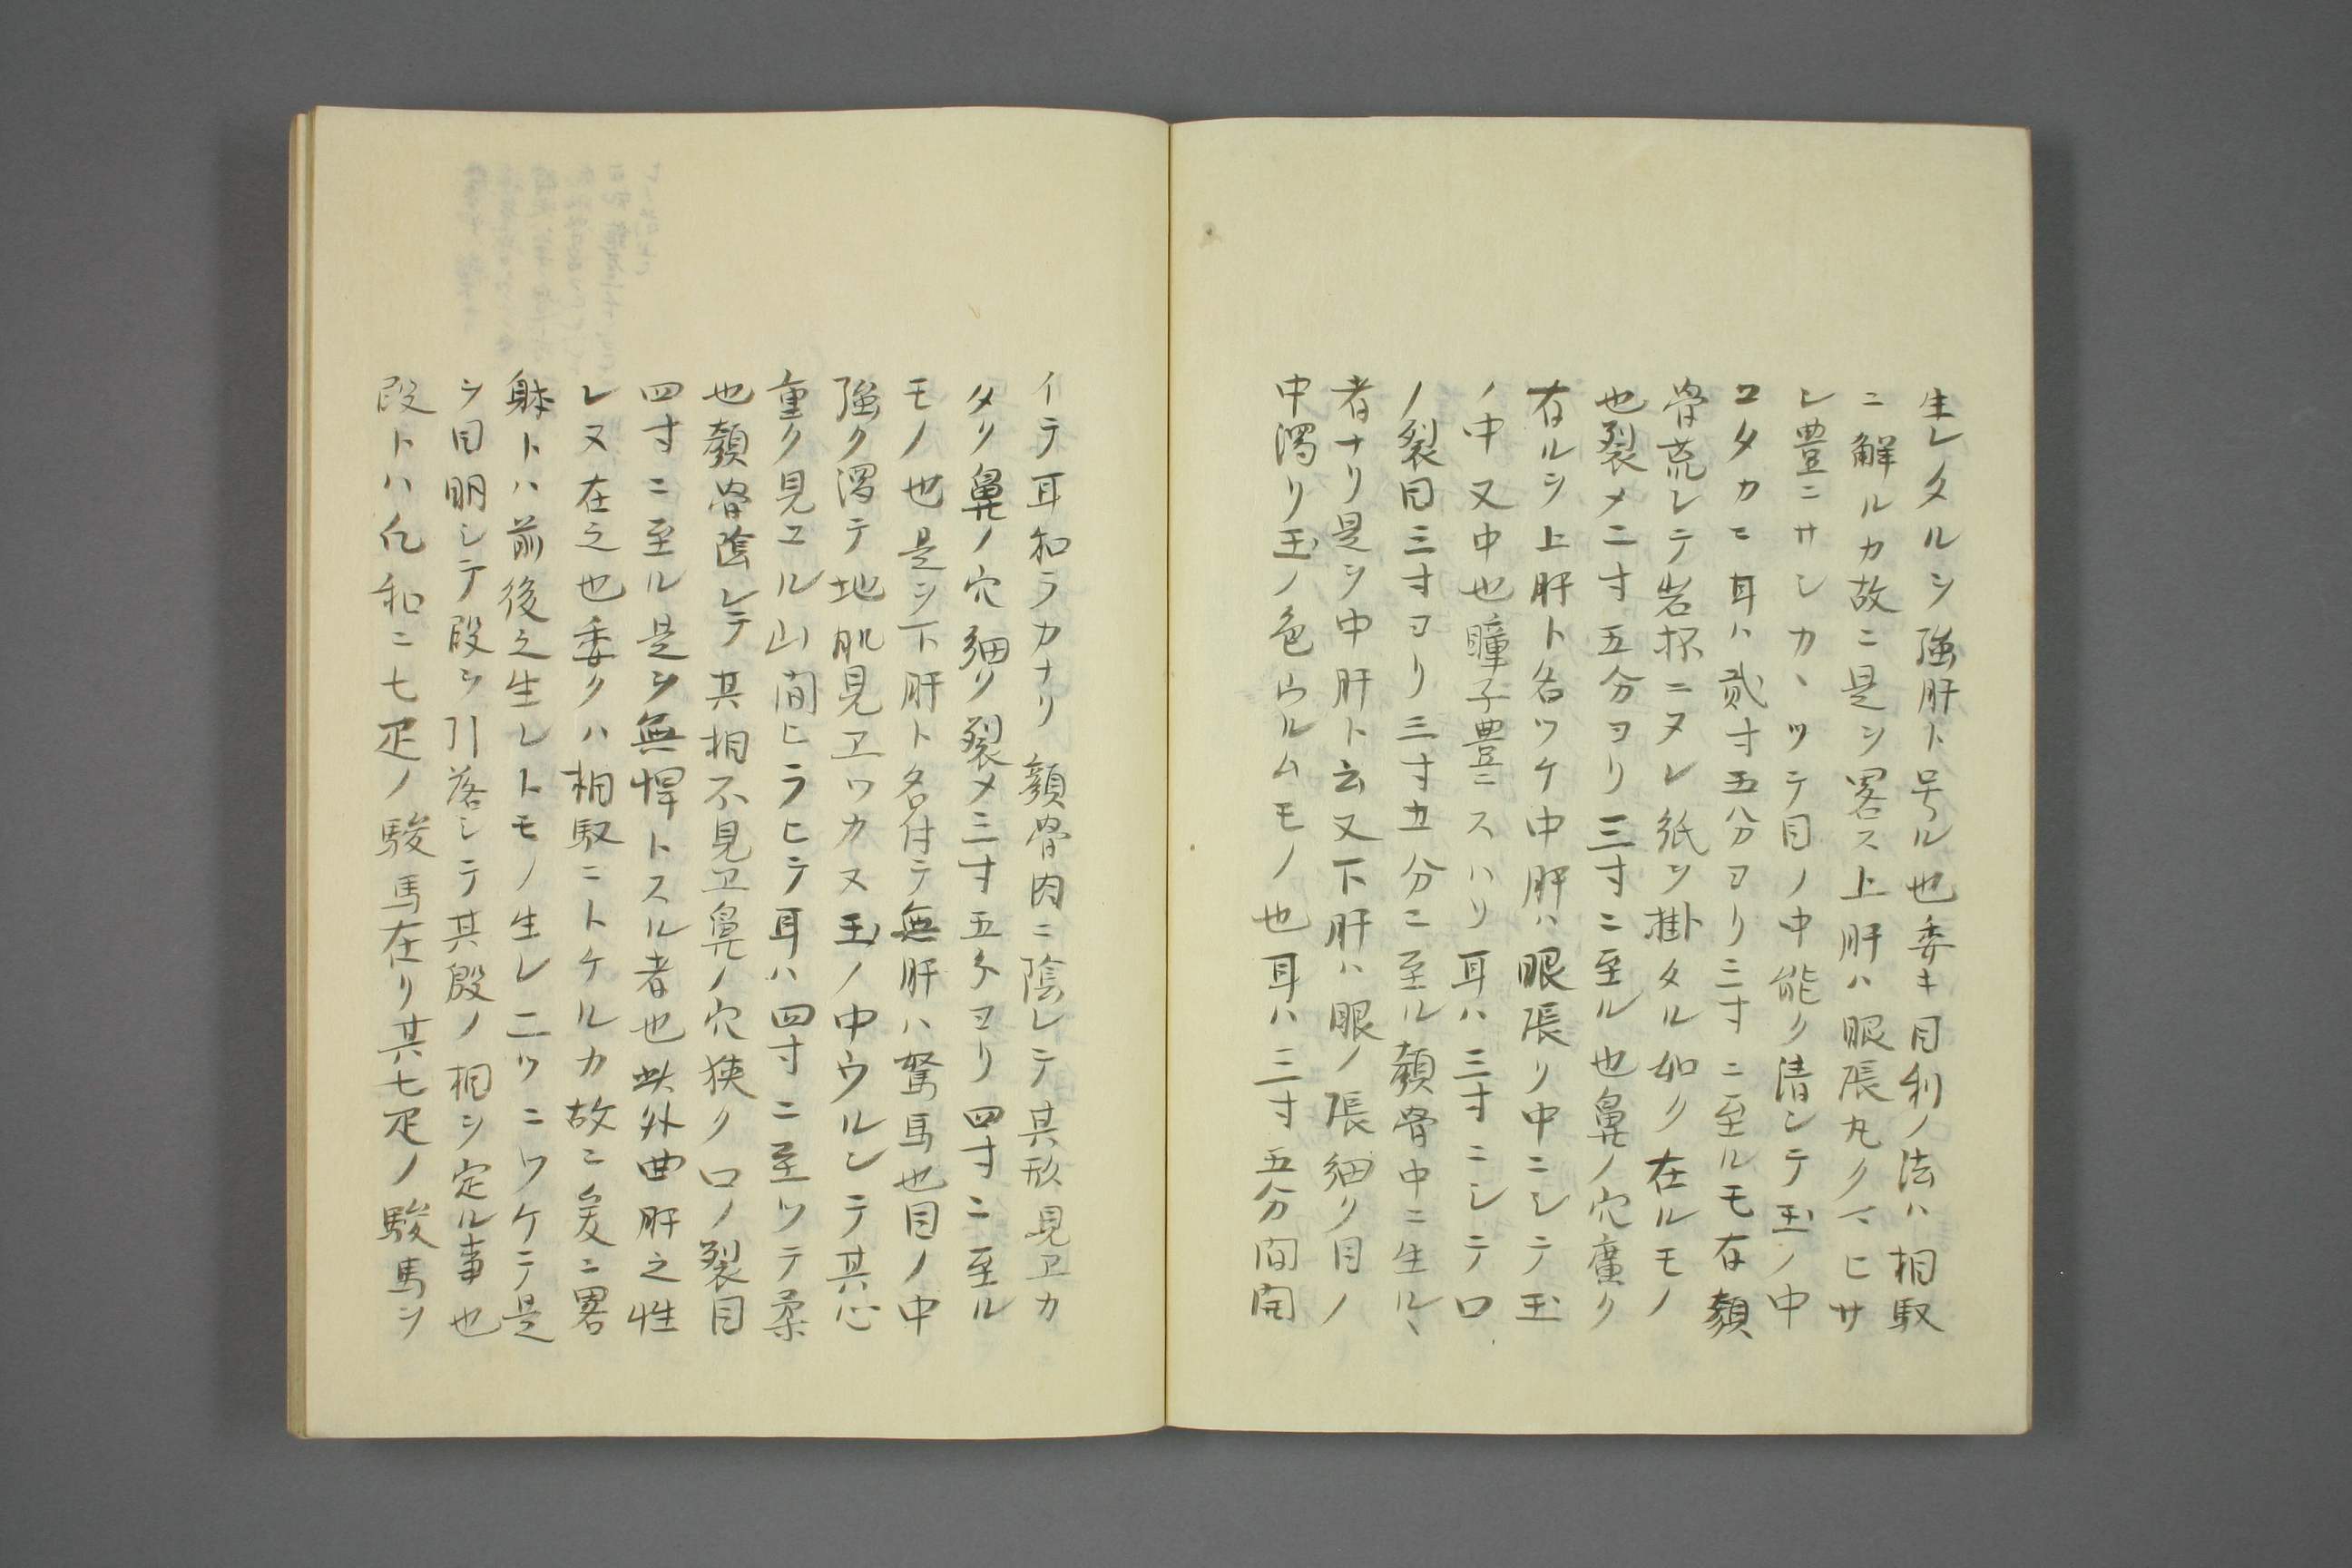 生レタルヲ強肝ト号ル也委キ目利ノ法ハ相馭
ニ解ルカ故ニ是ヲ畧ス上肝ハ眼張丸クマヒサ
シ豊ニサシカヽツテ目ノ中能ク清シテ玉ノ中
ユタカニ耳ハ貳寸五分ヨリ三寸ニ至ルモ有頬
骨荒レテ岩抔ニヌレ紙ヲ掛タル如ク在ルモノ
也裂メ二寸五分ヨリ三寸ニ至ル也鼻ノ穴廣ク
有ルヲ上肝ト名ツケ中肝ハ眼張リ中ニシテ玉
ノ中又中也瞳子豊ニスハリ耳ハ三寸ニシテ口
ノ裂目三寸ヨリ三寸五分ニ至ル頬骨中ニ生ルヽ
者ナリ是ヲ中肝ト云又下肝ハ眼ノ張細ク目ノ
中濁リ玉ノ色ウルムモノ也耳ハ三寸五分間開
イテ耳和ラカナリ頬骨肉ニ陰レテ其形見ヱカ
タク鼻ノ穴細ク裂メ三寸五分ヨリ四寸ニ至ル
モノ也是ヲ下肝ト名付テ無肝ハ駑馬也目ノ中
強ク濁テ地肌見ヱワカス玉ノ中ウルンテ其心
重ク見ユル山間ヒラヒテ耳ハ四寸ニ至ツテ柔
也頬骨陰レテ其相不見ヱ鼻ノ穴狭ク口ノ裂目
四寸ニ至ル是ヲ無悍トスル者也此外曲肝之性
レ又在之也委クハ相馭ニトケルカ故ニ爰ニ畧
躰トハ前後之生レトモノ生レ二ツニワケテ是
ヲ目明シテ段ヲ引落シテ其段ノ相ヲ定ル事也
段トハ凡和ニ七疋ノ駿馬在リ其七疋ノ駿馬ヲ